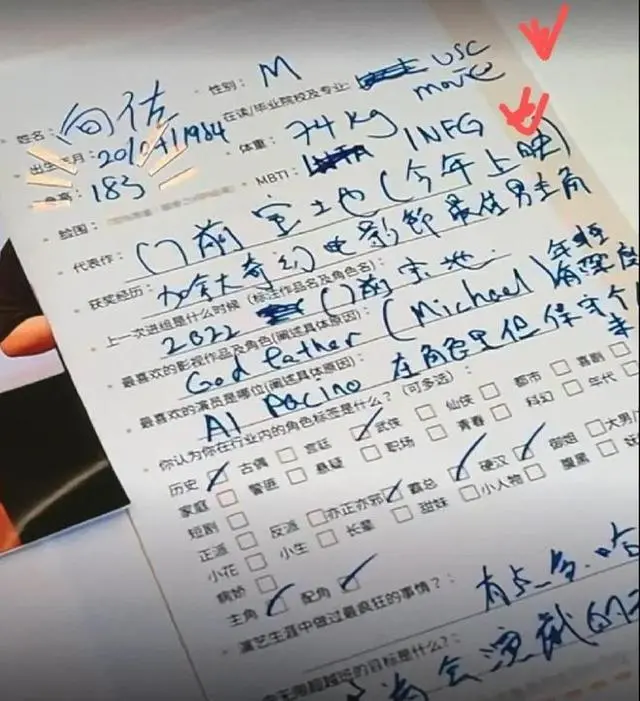 姓名：向佐 性别：M
出生年月：20/07/1984 在读/毕业院校及专业：USC movie
身高：183 体重：74kg
脸围： MBTI：INFG
代表作：门前宝地(今年上映)
获奖经历：加拿大奇幻电影節最佳男主角
上一次进组是什么时候（标注作品名及角色名）：
2022 门前宝地.
最喜欢的影视作品及角色(阐述具体原因)：
God father (Michael)
最喜欢的演员是哪位(阐述具体原因)：
Al Pacino 在角色里但保守个
你认为你在行业内的角色标签是什么？（可多选）：
历史 古偶 宫廷 武侠 仙侠 都市 喜剧
家庭 警匪 悬疑 职场 青春 科幻 年代
短剧
正派 反派 亦正亦邪 霸总 硬汉 御姐 大男
小花 小生 长辈 甜妹 小人物 腹黑
病娇
主角 配角
演艺生涯中做过最疯狂的事情？：有点多.哈
无限超越班的目标是什么？：
会演戏的